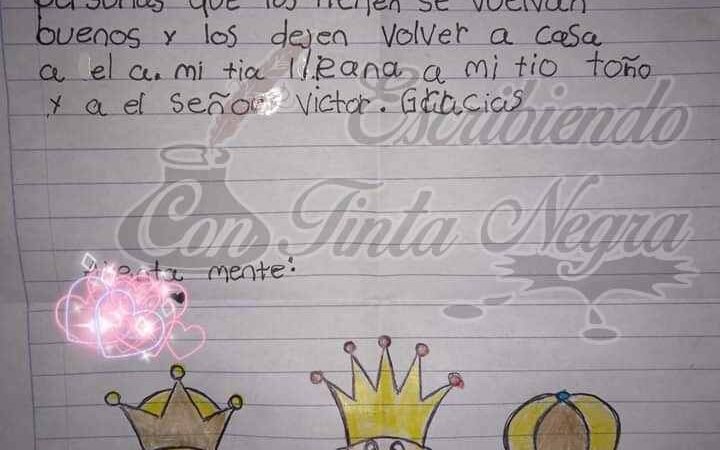 personas que los tienen se vuelvan
buenos y los dejen volver a casa
a el a. mi tia Ileana a mi tio toño
y a el señor victor. Gracias
Escribiendo
Con Tinta Negra
mente: